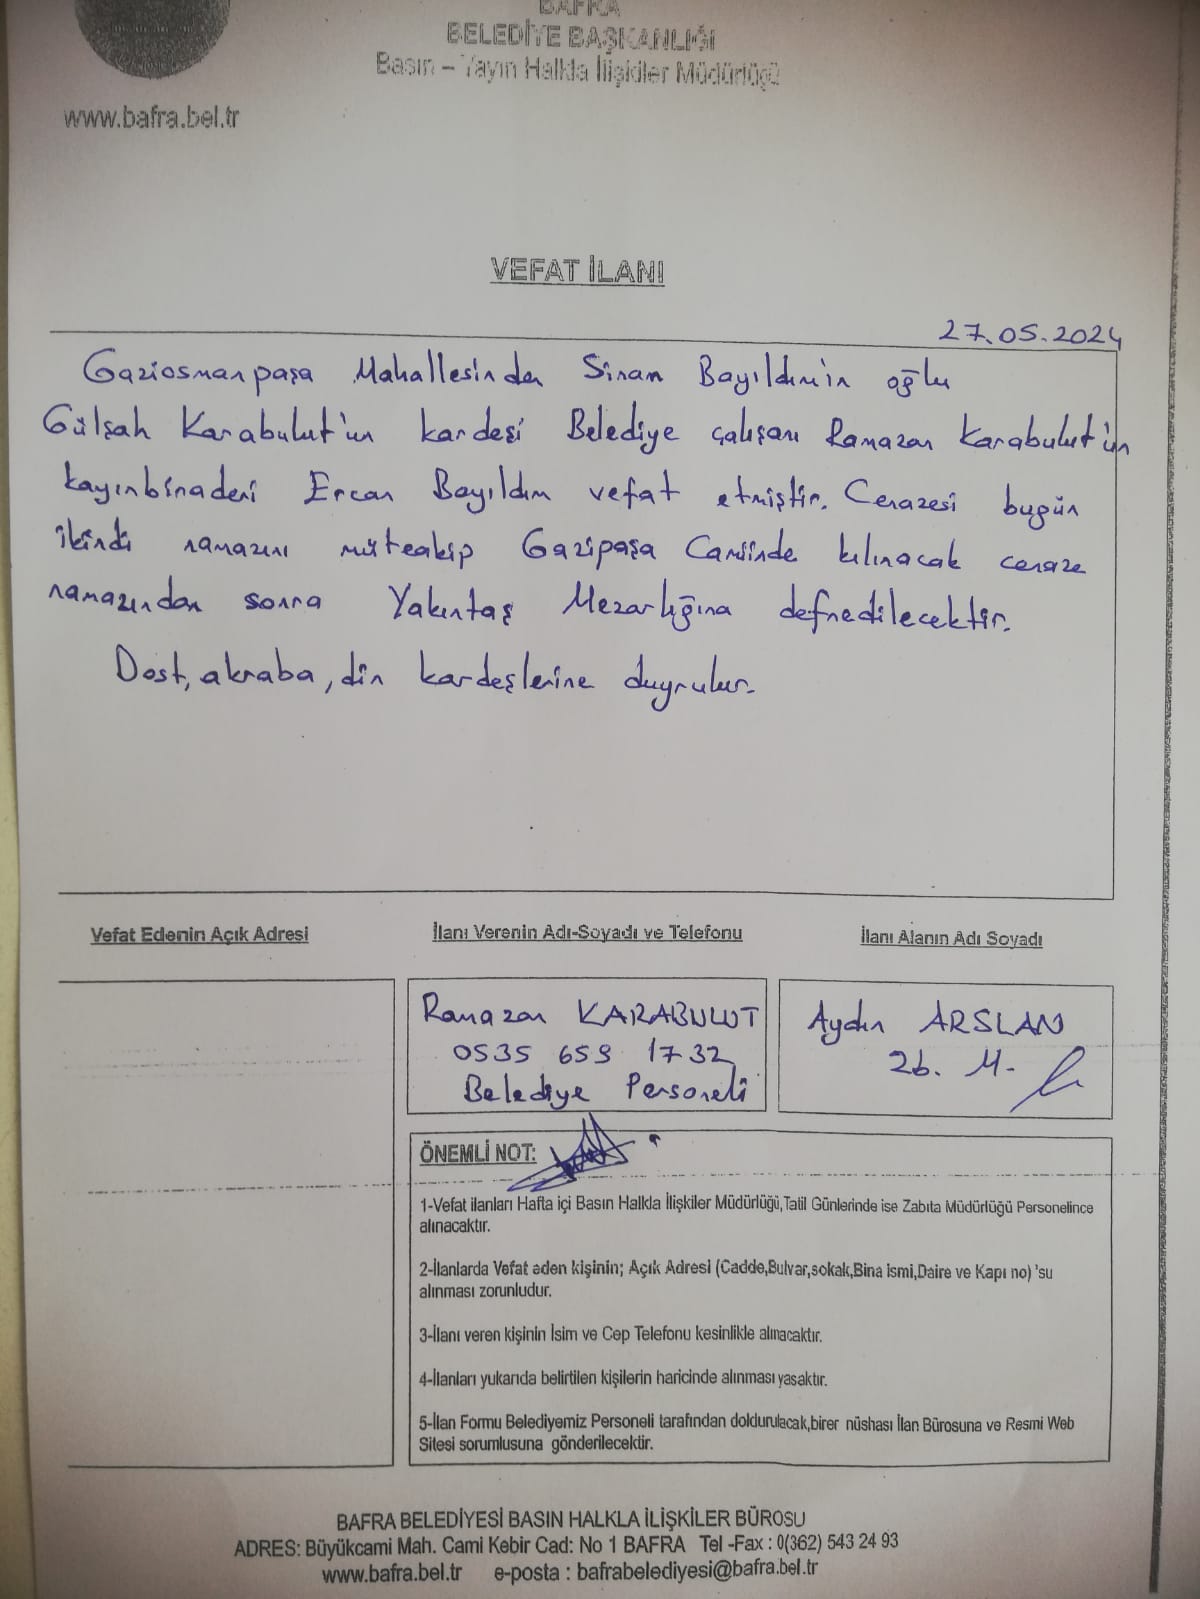 BAFRA
BELEDİYE BAŞKANLIĞI
Basın – Yayın Halkla İlişkiler Müdürlüğü
www.bafra.bel.tr
VEFAT İLANI
27.05.2024
Gaziosmanpaşa Mahallesinden Sinan Bayıldım'ın oğlu
Gülşah Karabulut'un kardeşi Belediye çalışanı Ramazan Karabulut'un
kayınbiraderi Ercan Bayıldım vefat etmiştir. Cenazesi bugün
ikindi namazını müteakip Gazipaşa Camiinde kılınacak cenaze
namazından sonra Yakıntaş Mezarlığına defnedilecektir.
Dost, akraba, din kardeşlerine duyrulur.
Vefat Edenin Açık Adresi
İlanı Verenin Adı-Soyadı ve Telefonu
İlanı Alanın Adı Soyadı
Ramazan KARABULUT
0535 659 1732
Belediye Personeli
Aydın ARSLAN
Zb. M.
ÖNEMLİ NOT:
1-Vefat ilanları Hafta içi Basın Halkla İlişkiler Müdürlüğü,Tatil Günlerinde ise Zabıta Müdürlüğü Personelince
alınacaktır.
2-İlanlarda Vefat eden kişinin; Açık Adresi (Cadde,Bulvar,sokak,Bina ismi,Daire ve Kapı no) 'su
alınması zorunludur.
3-İlanı veren kişinin İsim ve Cep Telefonu kesinlikle alınacaktır.
4-İlanları yukarıda belirtilen kişilerin haricinde alınması yasaktır.
5-İlan Formu Belediyemiz Personeli tarafından doldurulacak,birer nüshası İlan Bürosuna ve Resmi Web
Sitesi sorumlusuna gönderilecektir.
BAFRA BELEDİYESİ BASIN HALKLA İLİŞKİLER BÜROSU
ADRES: Büyükcami Mah. Cami Kebir Cad: No 1 BAFRA Tel -Fax : 0(362) 543 24 93
www.bafra.bel.tr e-posta : bafrabelediyesi@bafra.bel.tr